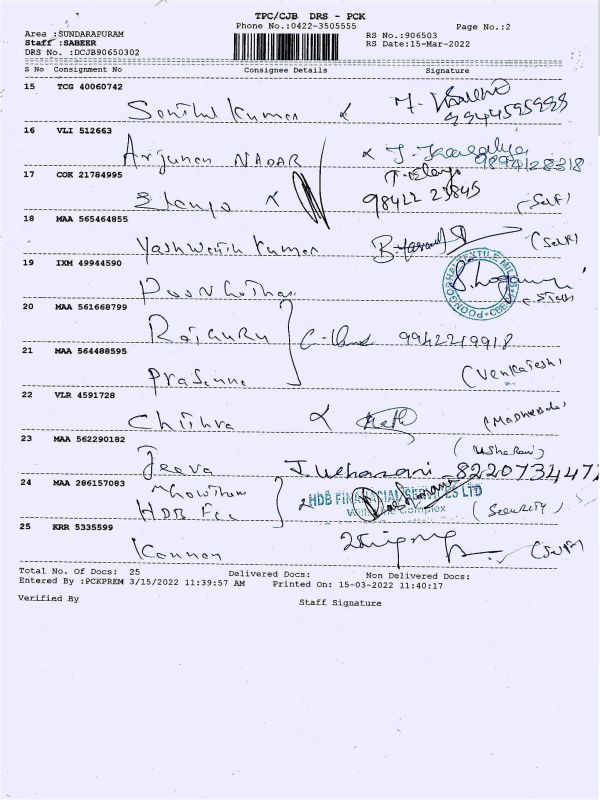 TPC/CJB DRS - PCK
Phone No.:0422-3505555
Page No.:2
Area :SUNDARAPURAM
RS No.:906503
Staff :SABEER
RS Date:15-Mar-2022
DRS No. :DCJB90650302
S No Consignment No Consignee Details Signature
15 TCG 40060742
Senthil Kumar
16 VLI 512663
Arjunan NADAR
9894128318
17 COK 21784995
98422 23845
(Self)
18 MAA 565464855
Yashwanth Kumar
(Self)
19 IXM 49944590
20 MAA 561668799
Rajguru 9942219918
21 MAA 564488595
Prasanna (Venkatesh)
22 VLR 4591728
Chithra
23 MAA 562290182
(Usharani)
Jeeva J. Usharani - 822073447
24 MAA 286157083
HDB FINANCIAL SERVICES LTD
Complex
HDB (Security)
25 KRR 5335599
Kannan (Self)
Total No. Of Docs: 25 Delivered Docs: Non Delivered Docs:
Entered By :PCKPREM 3/15/2022 11:39:57 AM Printed On: 15-03-2022 11:40:17
Verified By Staff Signature